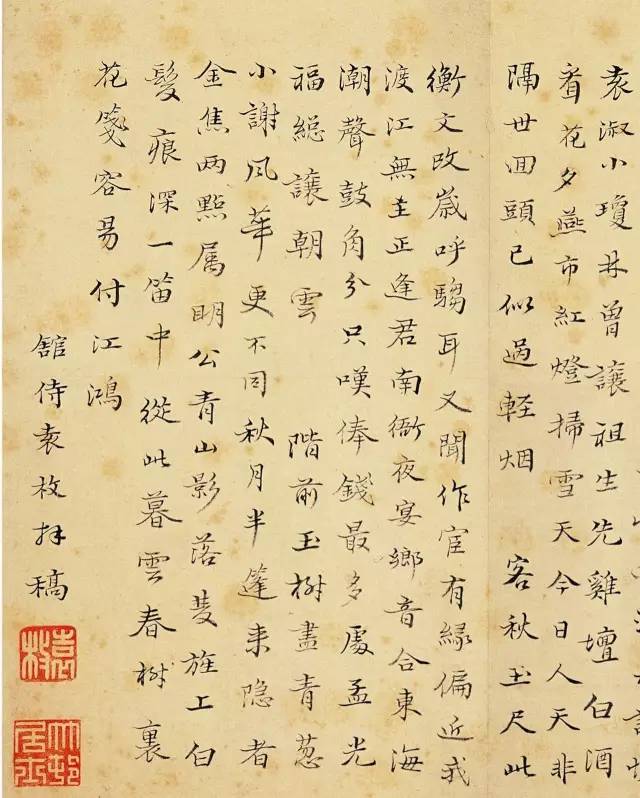 袁淑小瓊林曾讓祖生先雞壇白酒
看花夕燕市紅燈掃雪天今日人天非
隔世回頭已似過輕烟 客秋玉尺此
衡文改歲呼騶耳又聞作宦有緣偏近我
渡江無主正逢君南衙夜宴鄉音合東海
潮聲鼓角分只嘆俸錢最多處孟光
福總讓朝雲 階前玉樹盡青蔥
小謝風華更不同秋月半篷来隐者
金焦兩點属明公青山影落雙旌上白
髮痕深一笛中從此暮雲春樹裏
花箋容易付江鴻
舘侍袁枚拜稿
袁枚